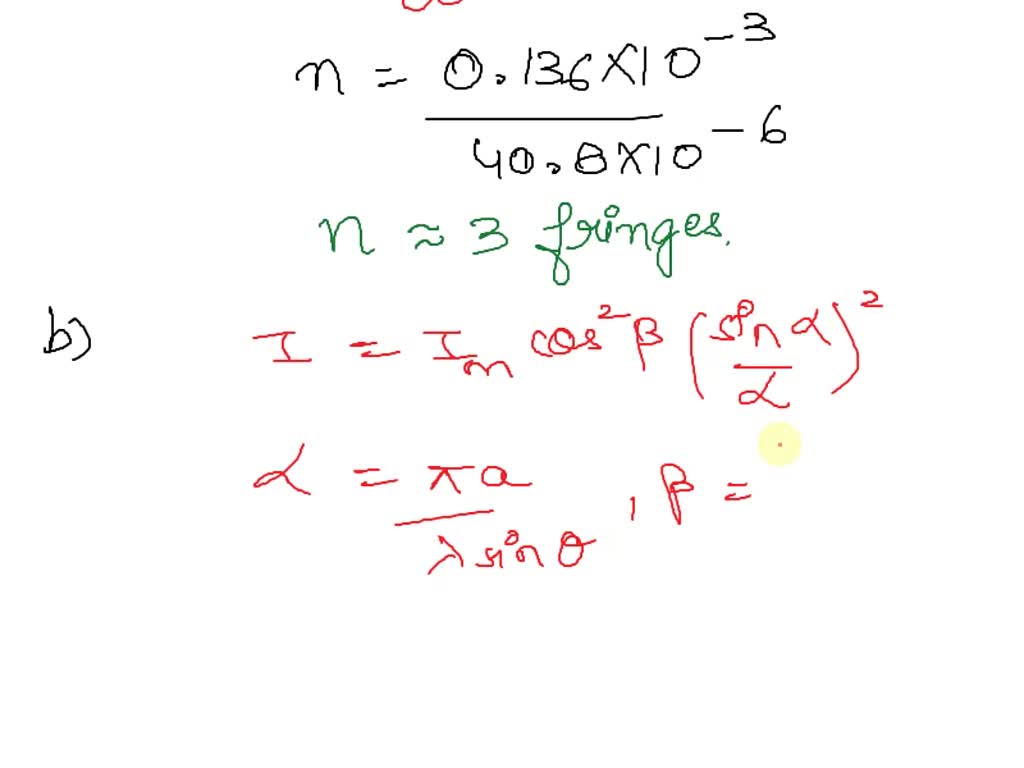 n = 0.136×10⁻³
40.8×10⁻⁶
n ≈ 3 fringes.
b) I = Iₘ cos²β (sin α / α)²
α = πa / λ sin θ , β =